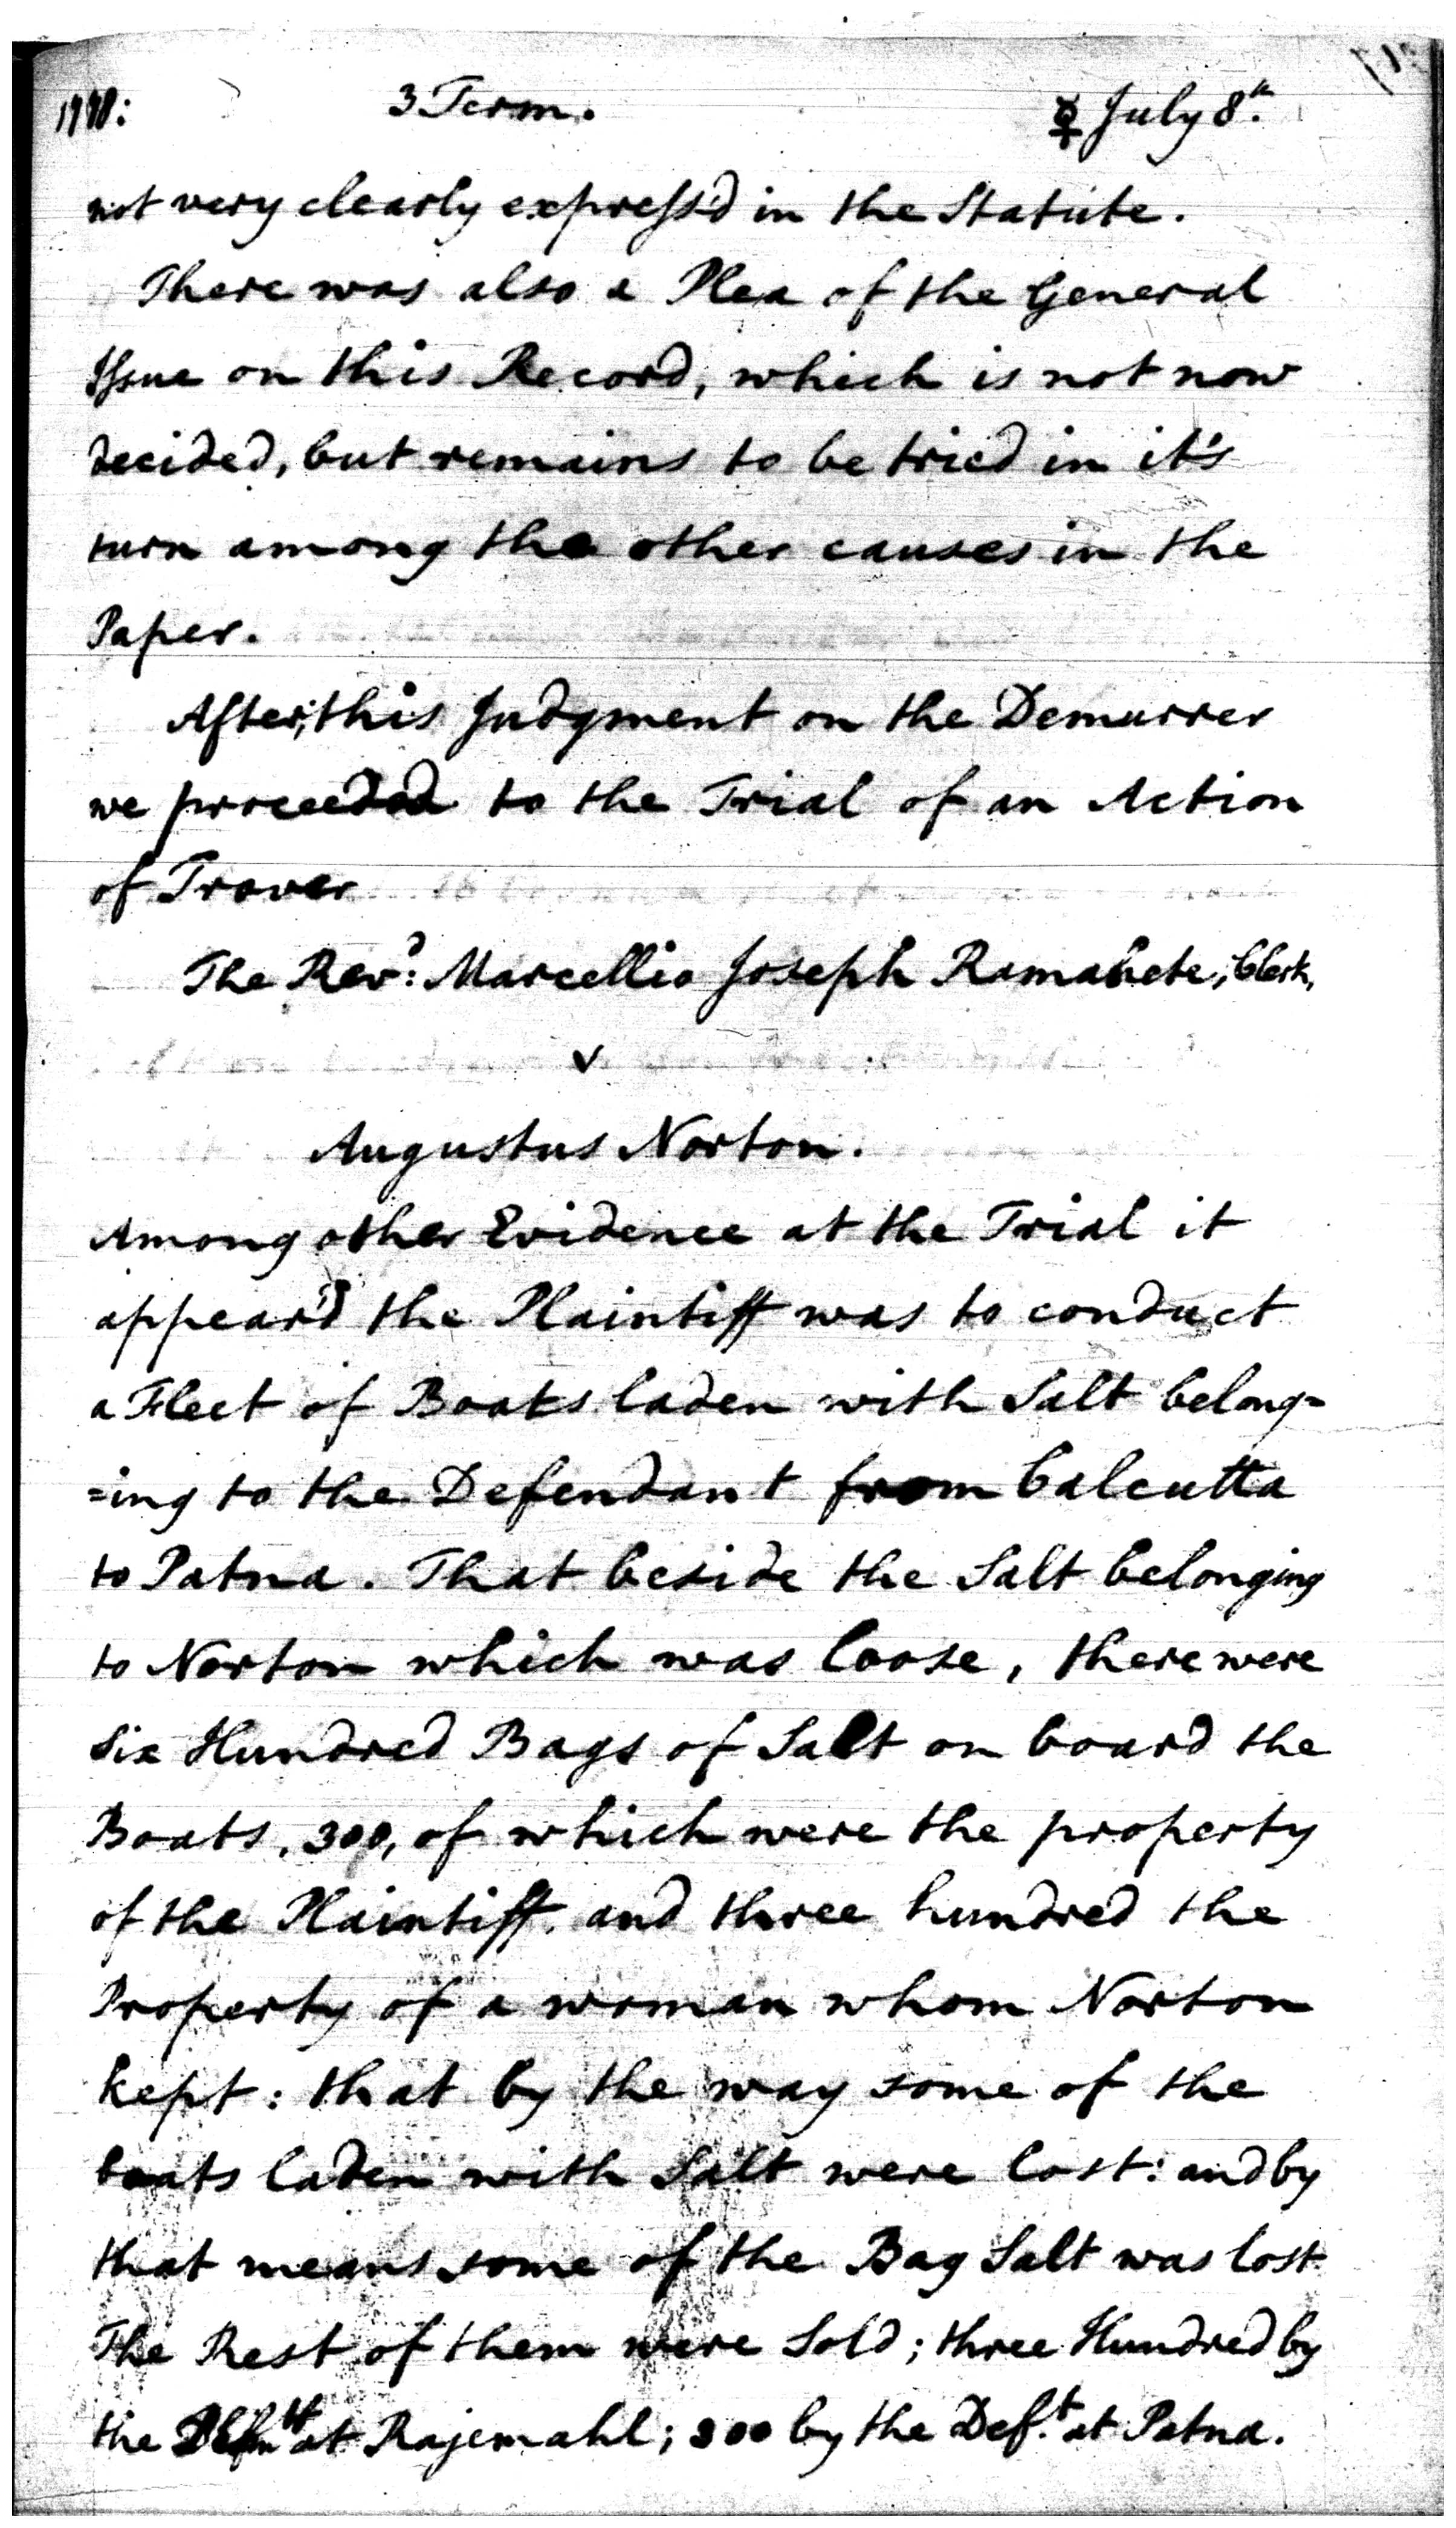 1778: 3 Term. ☿ July 8th.
not very clearly express'd in the Statute.
There was also a Plea of the General
Issue on this Record, which is not now
decided, but remains to be tried in it's
turn among the other causes in the
Paper.
After this Judgment on the Demurrer
we proceeded to the Trial of an Action
of Trover
The Revd: Marcellio Joseph Ramahete, Clerk,
v
Augustus Norton.
Among other Evidence at the Trial it
appear'd the Plaintiff was to conduct
a Fleet of Boats laden with Salt belong=
=ing to the Defendant from Calcutta
to Patna. That beside the Salt belonging
to Norton which was loose, there were
six Hundred Bags of Salt on board the
Boats, 300, of which were the property
of the Plaintiff, and three hundred the
Property of a woman whom Norton
kept: that by the way some of the
boats laden with Salt were lost: and by
that means some of the Bag Salt was lost.
The Rest of them were Sold; three Hundred by
the at Rajemahl; 300 by the Def.t at Patna.